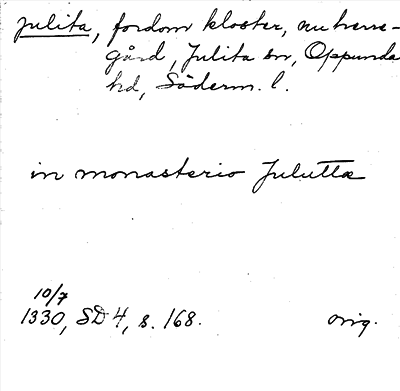 Julita, fordom kloster, nu herre-
gård, Julita sn, Oppunda
hd, Söderm. l.
in monasterio Julutta
10/7
1330, SD 4, s. 168. orig.